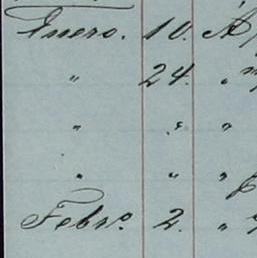 Enero. 10. A
" 24. "
" " "
" " "
Febro. 2. "